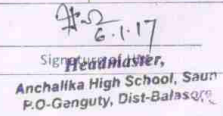 6.1.17
Headmaster,
Anchalika High School, Saun
P.O-Ganguty, Dist-Balasore